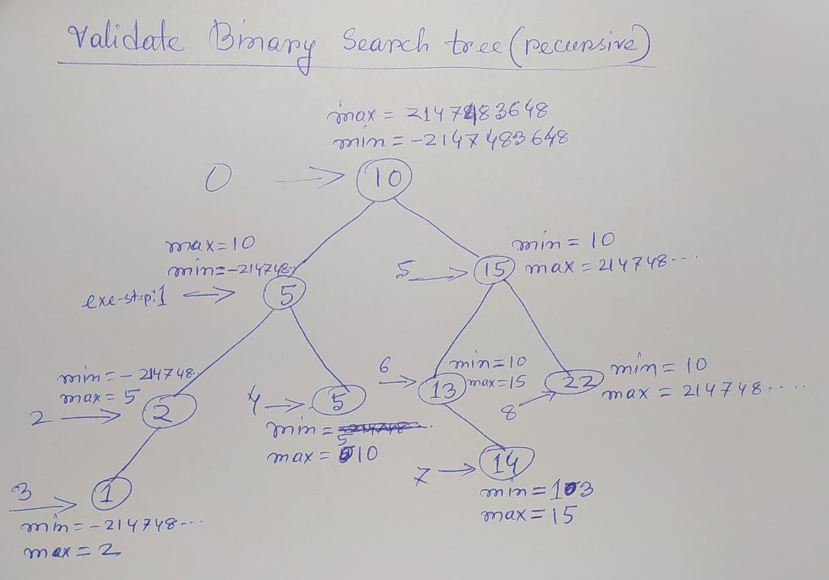 Validate Binary Search tree (recursive)
max = 2147483648
min = -2147483648
0
10
max=10
min=-214748
exe-step:1
5
5
15
min = 10
max = 214748...
min = -214748.
max = 5
2
2
4
5
min = 5
max = 10
6
13
min=10
max=15
8
22
min = 10
max = 214748....
3
1
min = -214748...
max = 2
7
14
min = 13
max = 15